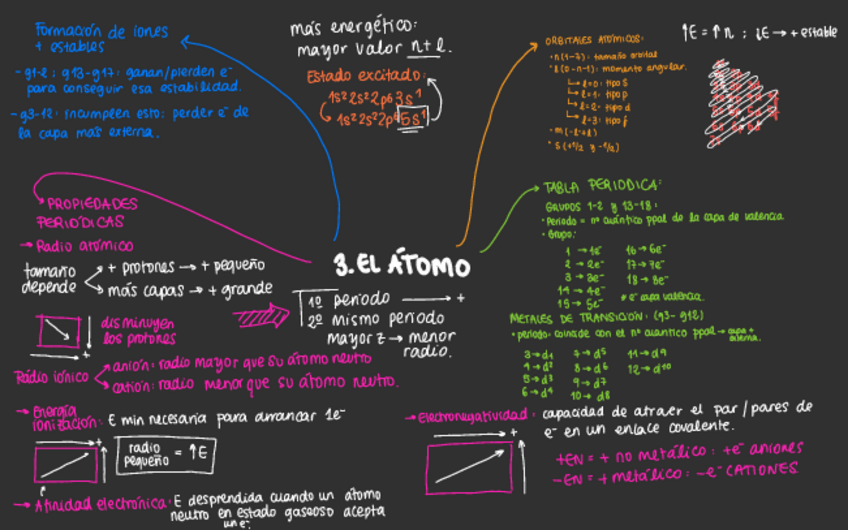 Formación de iones
+ estables
- g1-2 ; g13-g17: ganan/pierden e⁻
para conseguir esa estabilidad.
- g3-12: incumplen esto: perder e⁻ de
la capa más externa.
más energético:
mayor valor n+l.
Estado excitado:
1s² 2s² 2p⁶ 3s¹
1s² 2s² 2p⁶ 5s¹
ORBITALES ATÓMICOS:
· n (1-7): tamaño orbital
· l (0-n-1): momento angular.
l=0: tipo s
l=1: tipo p
l=2: tipo d
l=3: tipo f
· m (-l+l)
↑E = ↑n ; ↓E → + estable
3. EL ÁTOMO
→ PROPIEDADES
PERIÓDICAS
→ Radio atómico
tamaño
depende
+ protones → + pequeño
más capas → + grande
disminuyen
los protones
+
1º período → +
2º mismo período
mayor z → menor
radio.
Radio iónico
anión: radio mayor que su átomo neutro
catión: radio menor que su átomo neutro.
→ Energía
ionización: E min necesaria para arrancar 1e⁻
+
radio
pequeño = ↑E
→ Afinidad electrónica: E desprendida cuando un átomo
neutro en estado gaseoso acepta
un e⁻.
→ TABLA PERIODICA:
GRUPOS 1-2 y 13-18:
· Periodo = nº cuántico ppal de la capa de valencia
· Grupo:
1 → 1e⁻
2 → 2e⁻
3 → 3e⁻
14 → 4e⁻
15 → 5e⁻
16 → 6e⁻
17 → 7e⁻
18 → 8e⁻
* e⁻ capa valencia.
METALES DE TRANSICIÓN: (g3-g12)
· periodo: coincide con el nº cuántico ppal → capa +
externa.
3 → d¹
4 → d²
5 → d³
6 → d⁴
7 → d⁵
8 → d⁶
9 → d⁷
10 → d⁸
11 → d⁹
12 → d¹⁰
→ Electronegatividad: capacidad de atraer el par/pares de
e⁻ en un enlace covalente.
+
+EN = + no metálico: +e⁻ aniones
-EN = + metálico: -e⁻ CATIONES